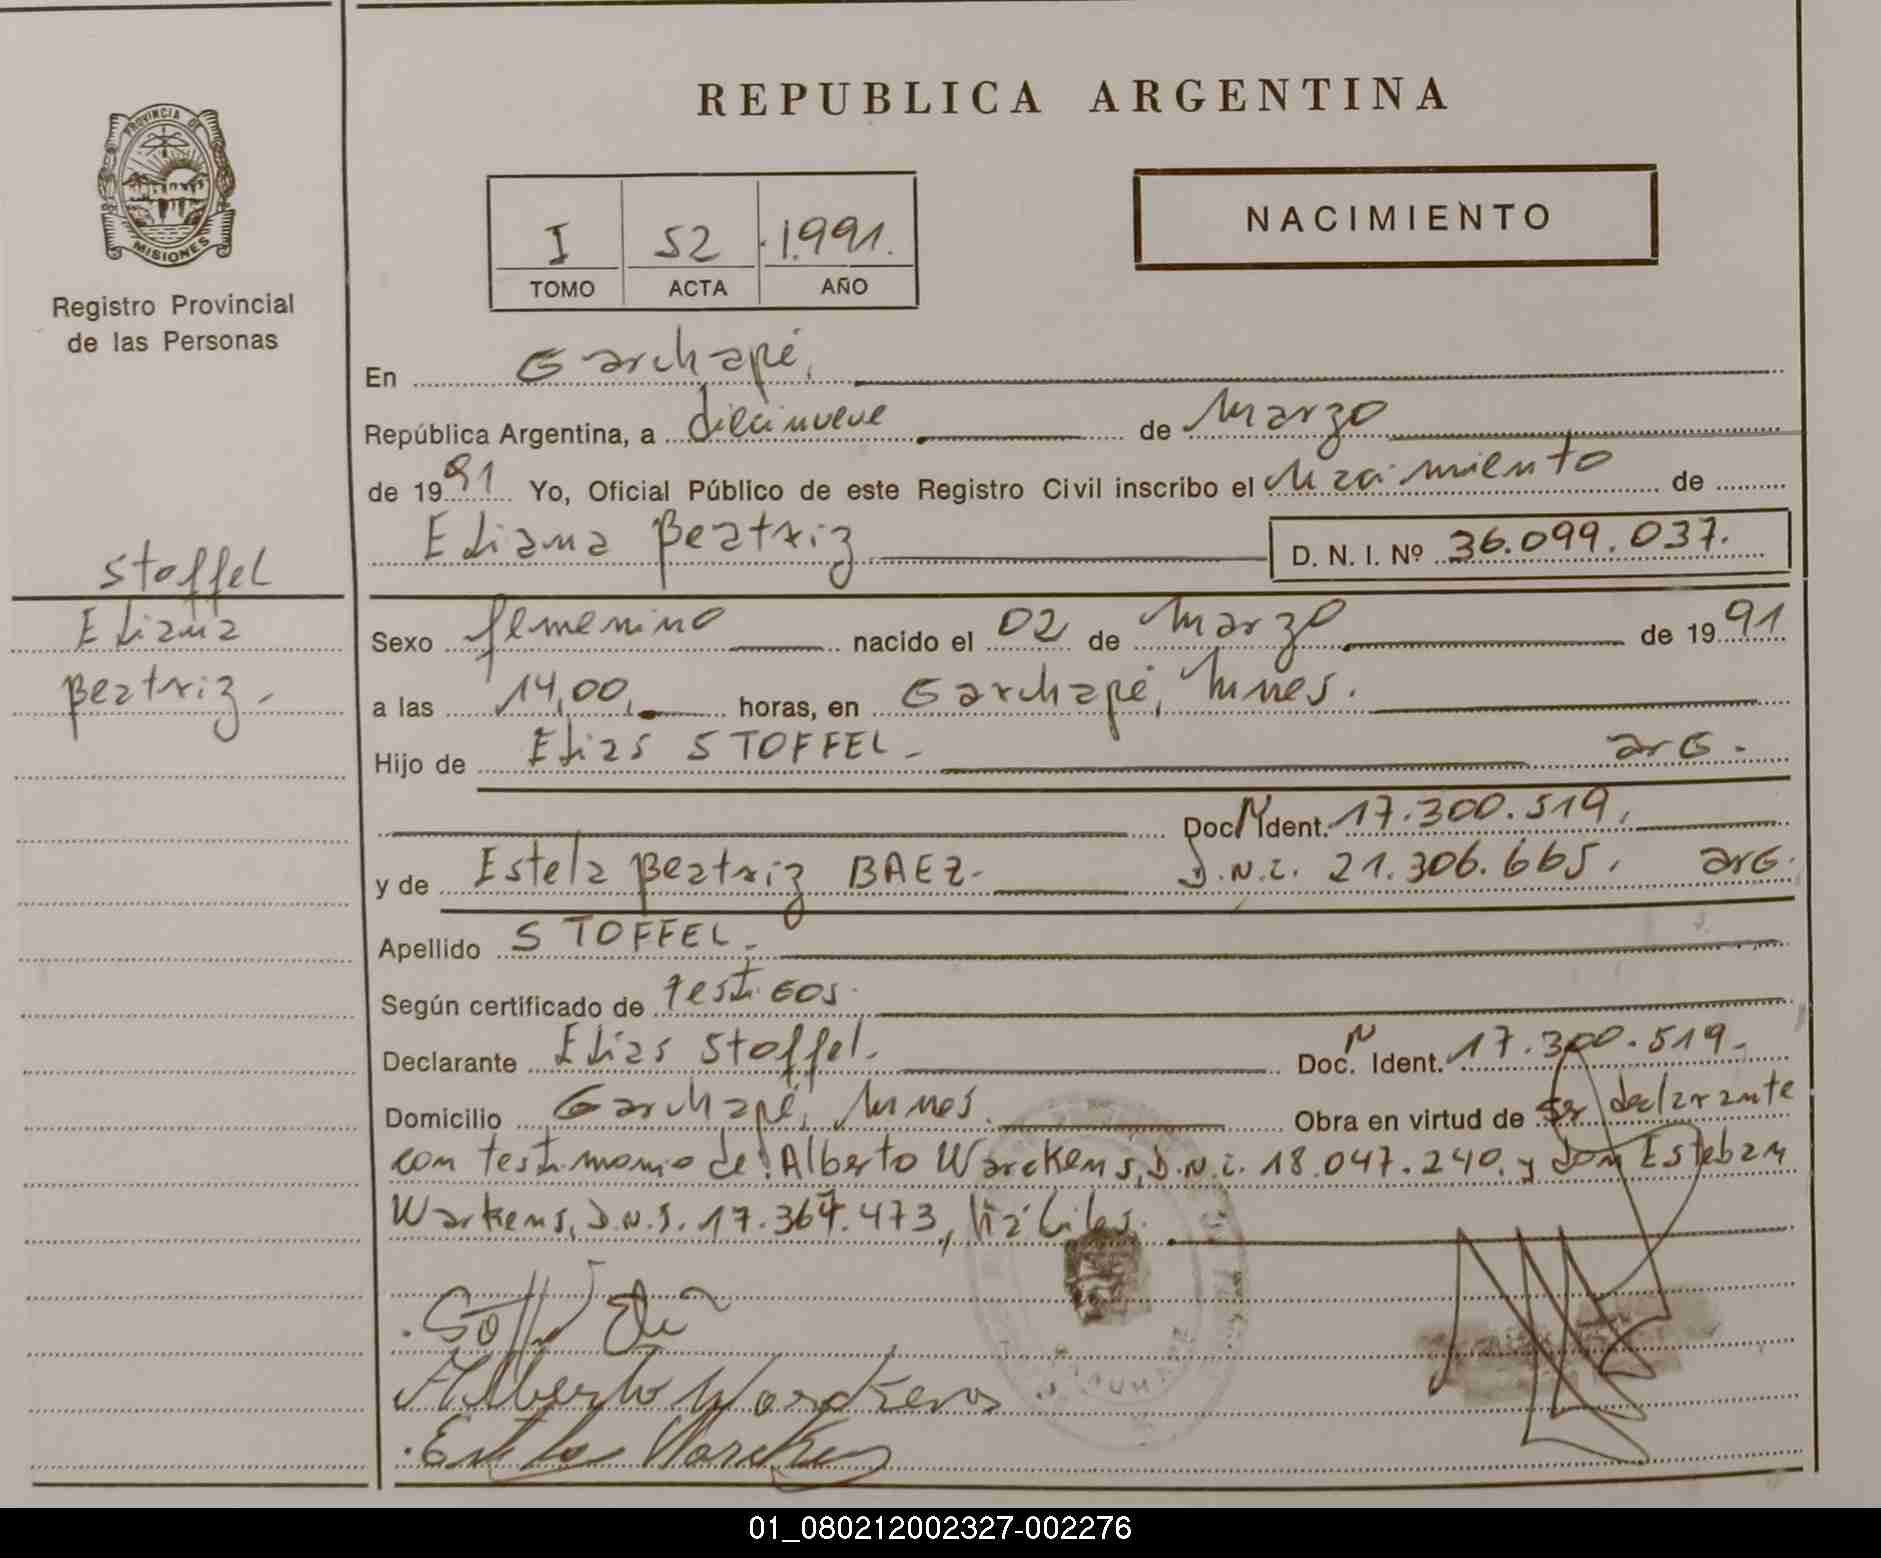 PROVINCIA DE
MISIONES
Registro Provincial
de las Personas
Stoffel
Eliana
Beatriz.
REPUBLICA ARGENTINA
I 52 1.991.
TOMO ACTA AÑO
NACIMIENTO
En Garuhapé,
República Argentina, a diecinueve de Marzo
de 1991 Yo, Oficial Público de este Registro Civil inscribo el Nacimiento de
Eliana Beatriz D. N. I. Nº 36.099.037.
Sexo femenino nacido el 02 de Marzo de 1991
a las 14,00, horas, en Garuhapé, Mnes.
Hijo de Elias STOFFEL - arg.
Doc. N Ident. 17.300.519,
y de Estela Beatriz BAEZ. D.N.i. 21.306.665, arg.
Apellido STOFFEL.
Según certificado de testigos.
Declarante Elias Stoffel. Doc. N Ident. 17.300.519.
Domicilio Garuhapé, Mnes. Obra en virtud de ser declarante
con testimonio de: Alberto Warckens, D.N.i. 18.047.240, y don Esteban
Warkens, D.N.I. 17.364.473, hábiles.
Alberto Warckens
01_080212002327-002276